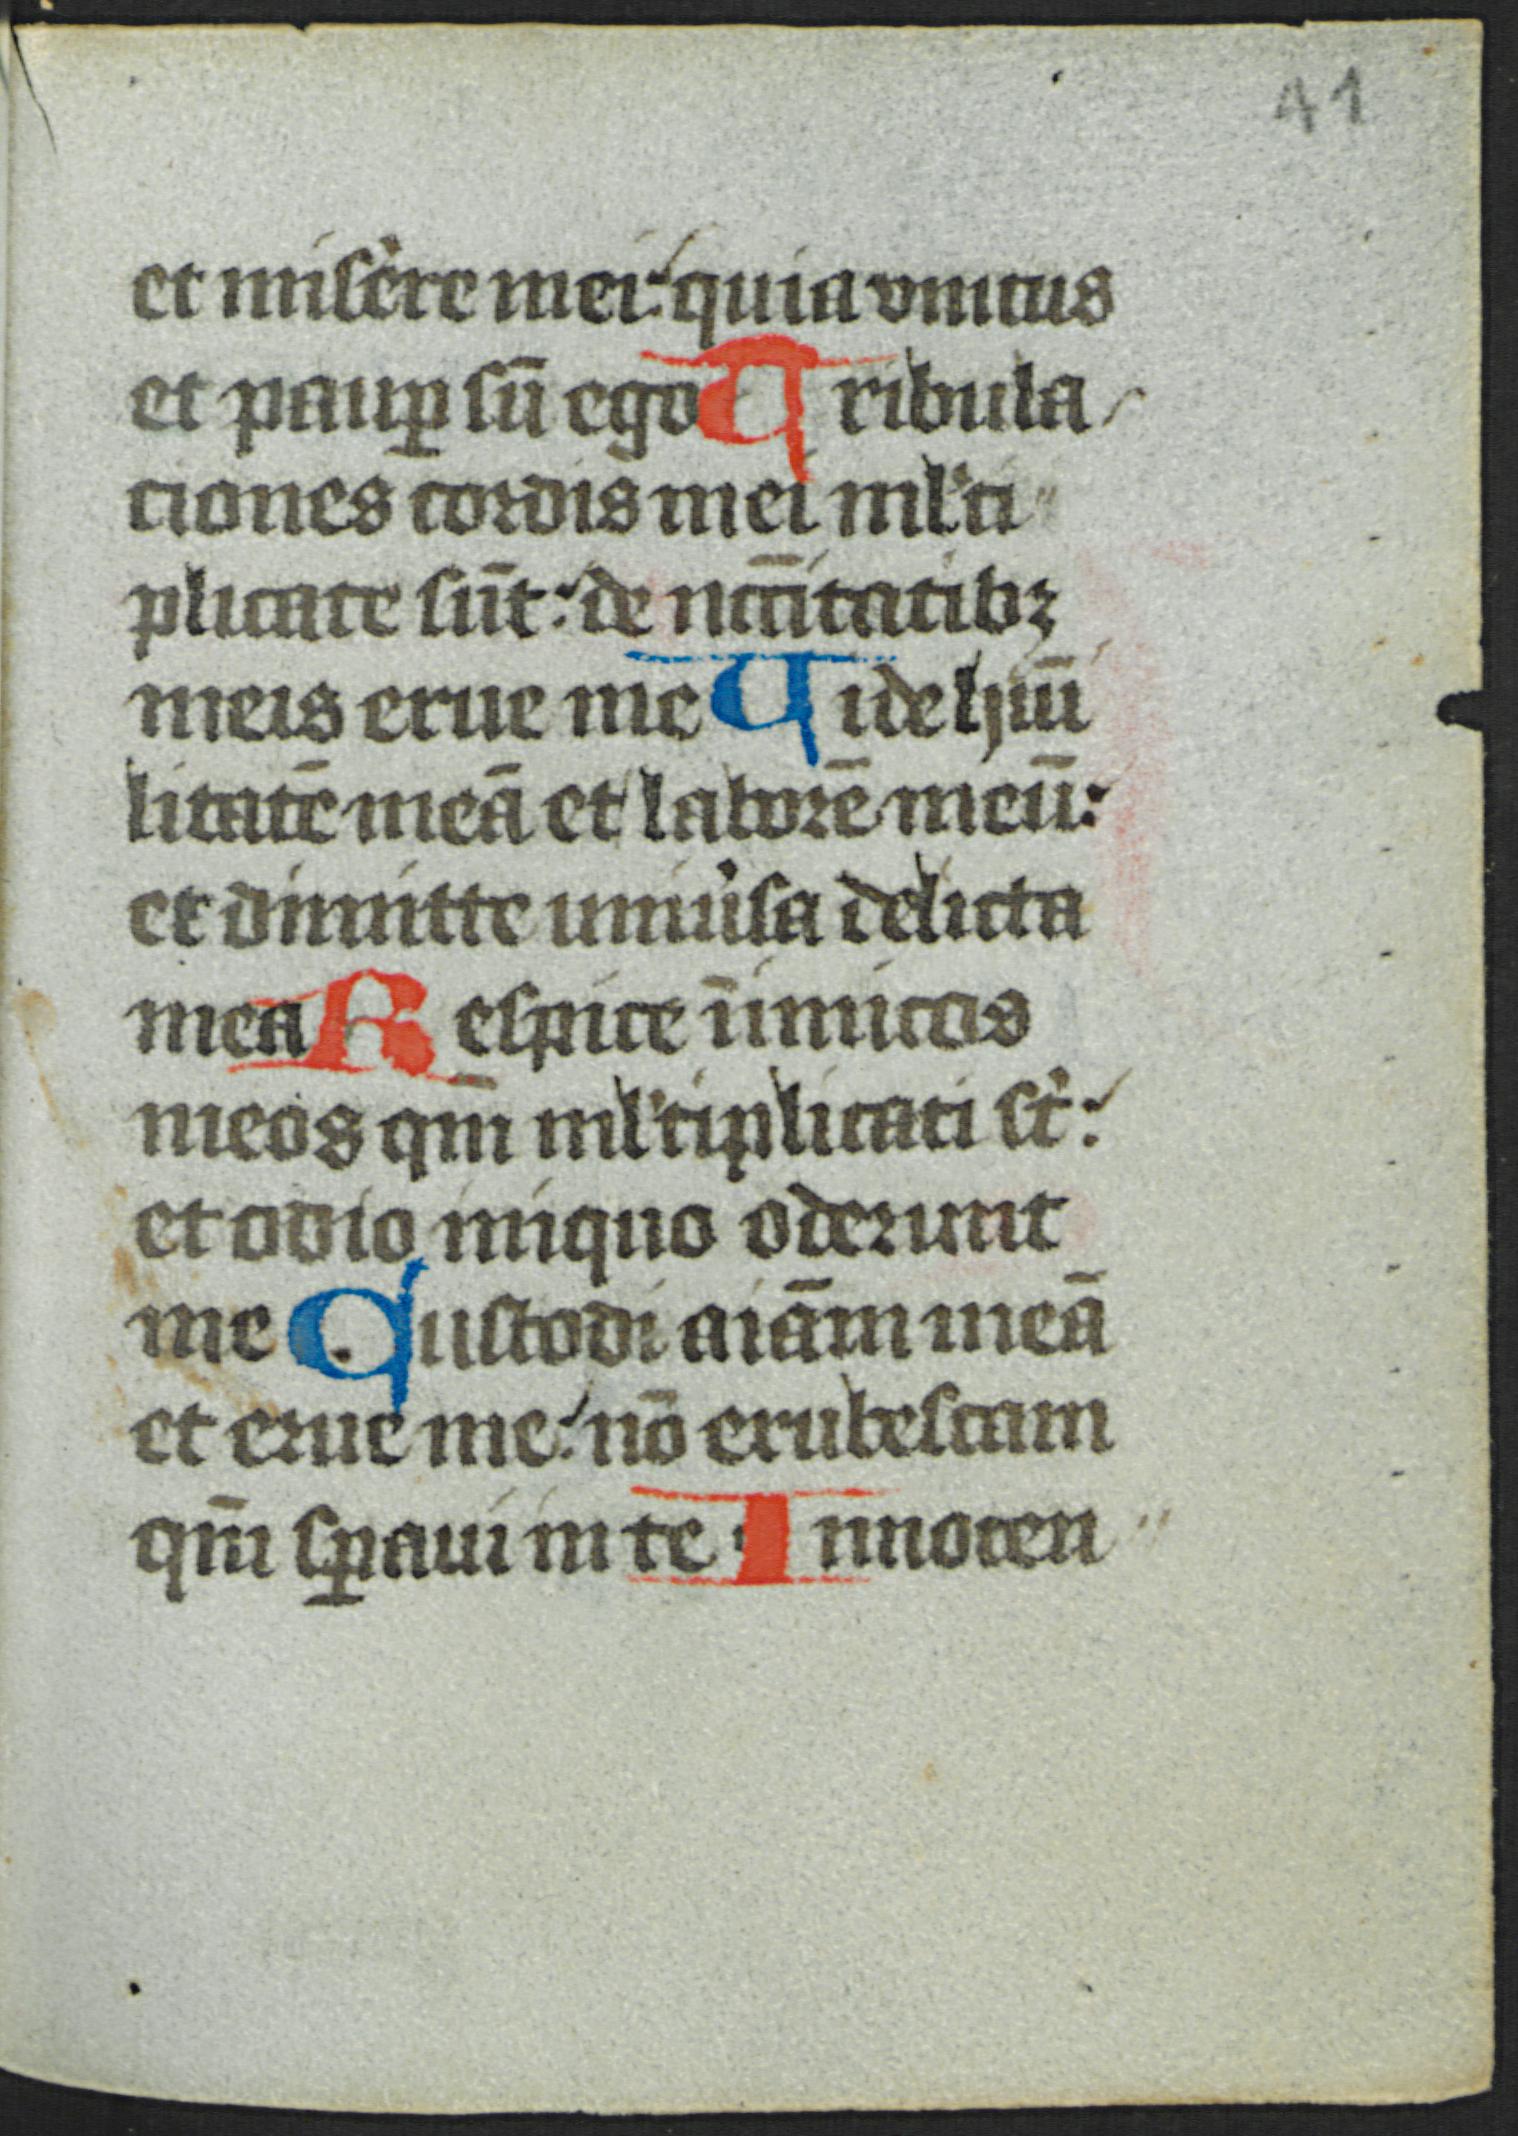 41
et mis̾ere mei: quia vnicus
et paup̲ sū ego Tribula
ciones cordis mei ml̾ti
plicate sūt: de nccītatibꝫ
meis erue me Uide hūi
litatē meā et laborē meū:
et dimitte uniu̾sa delicta
mea Respice īimicos
meos qm̄ ml̾tiplicati st̾:
et odio iniquo oderunt
me Custodi aiām meā
et erue me: nō erubescam
qm̄ sꝑaui in te Innocen